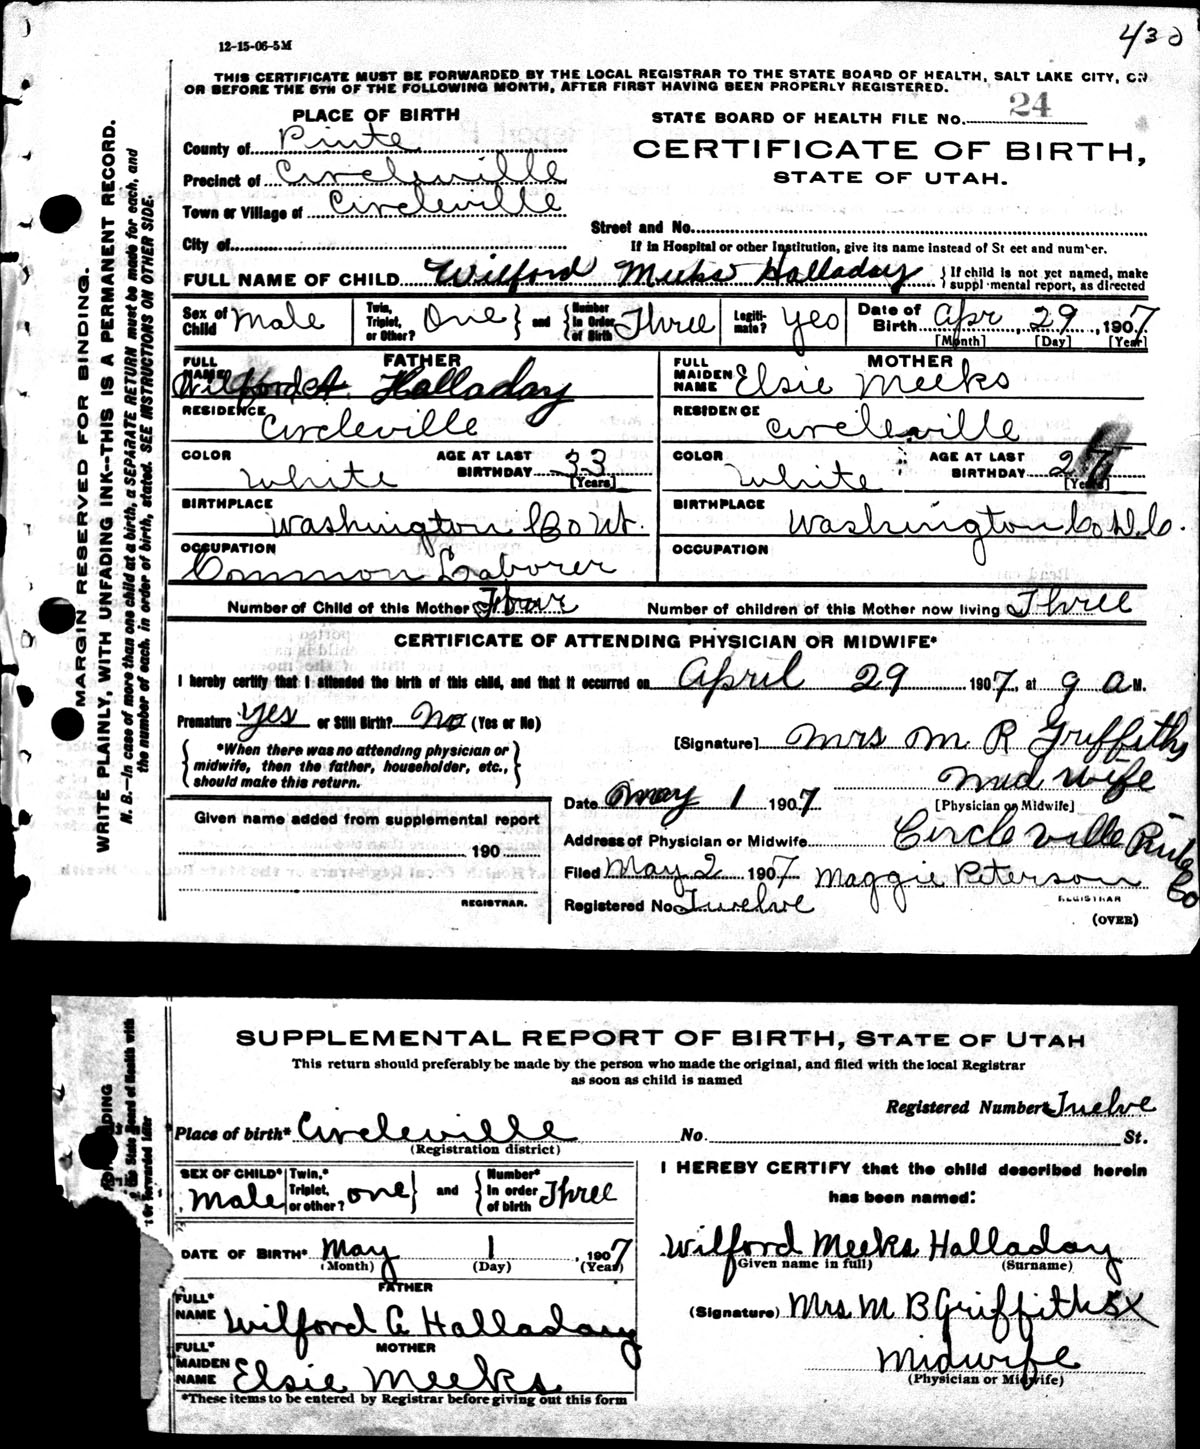 12-15-06-5M
THIS CERTIFICATE MUST BE FORWARDED BY THE LOCAL REGISTRAR TO THE STATE BOARD OF HEALTH, SALT LAKE CITY, ON
OR BEFORE THE 5TH OF THE FOLLOWING MONTH, AFTER FIRST HAVING BEEN PROPERLY REGISTERED.
PLACE OF BIRTH
STATE BOARD OF HEALTH FILE NO. 24
County of Piute
CERTIFICATE OF BIRTH,
Precinct of Circleville
STATE OF UTAH.
Town or Village of Circleville
Street and No.
City of
If in Hospital or other Institution, give its name instead of St eet and number.
FULL NAME OF CHILD Wilford Meeks Halladay { If child is not yet named, make
suppl mental report, as directed
Sex of Child Male Twin, Triplet, or Other? One } and { Number in Order of Birth Three Legiti-mate? Yes Date of Birth Apr 29, 1907
[Month] [Day] [Year]
FULL NAME FATHER Wilford A. Halladay
FULL MAIDEN NAME MOTHER Elsie Meeks
RESIDENCE Circleville
RESIDENCE Circleville
COLOR White AGE AT LAST BIRTHDAY 33 [Years]
COLOR White AGE AT LAST BIRTHDAY 27 [Years]
BIRTHPLACE Washington Co Ut.
BIRTHPLACE Washington Co
OCCUPATION Common Laborer
OCCUPATION
Number of Child of this Mother Four Number of children of this Mother now living Three
CERTIFICATE OF ATTENDING PHYSICIAN OR MIDWIFE*
I hereby certify that I attended the birth of this child, and that it occurred on April 29 1907, at 9 a M.
Premature Yes or Still Birth? No (Yes or No)
{ *When there was no attending physician or midwife, then the father, householder, etc., should make this return. }
[Signature] Mrs M R Griffiths
Mid Wife
[Physician or Midwife]
Date May 1 1907
Given name added from supplemental report
190
REGISTRAR.
Address of Physician or Midwife Circleville Piute Co
Filed May 2 1907 Maggie Peterson
REGISTRAR
Registered No. Twelve
(OVER)
MARGIN RESERVED FOR BINDING.
WRITE PLAINLY, WITH UNFADING INK--THIS IS A PERMANENT RECORD.
N. B.--In case of more than one child at a birth, a SEPARATE RETURN must be made for each, and
the number of each. in order of birth, stated. SEE INSTRUCTIONS ON OTHER SIDE.
SUPPLEMENTAL REPORT OF BIRTH, STATE OF UTAH
This return should preferably be made by the person who made the original, and filed with the local Registrar
as soon as child is named
Registered Number Twelve
Place of birth* Circleville No. St.
(Registration district)
SEX OF CHILD* Male Twin,* Triplet, or other? one } and { Number* in order of birth Three
I HEREBY CERTIFY that the child described herein
has been named:
DATE OF BIRTH* May 1, 1907
(Month) (Day) (Year)
Wilford Meeks Halladay
(Given name in full) (Surname)
FATHER
FULL* NAME Wilford A Halladay
(Signature) Mrs M B Griffiths X
MOTHER
FULL* MAIDEN NAME Elsie Meeks
Midwife
(Physician or Midwife)
*These items to be entered by Registrar before giving out this form